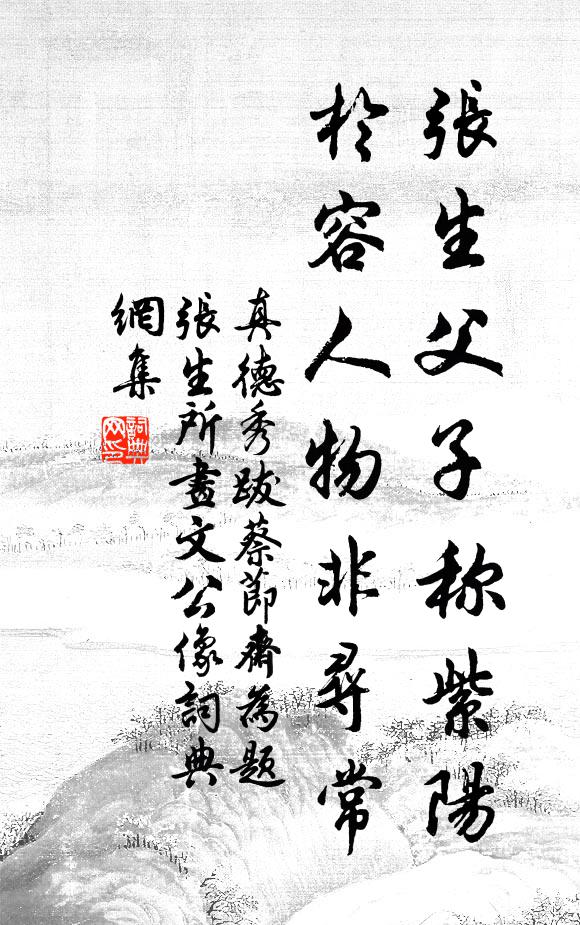 張生父子称紫陽
於容人物非尋常
真德秀跋蔡節齋為題
張生所畫文公像詞典
網集
詞典
网